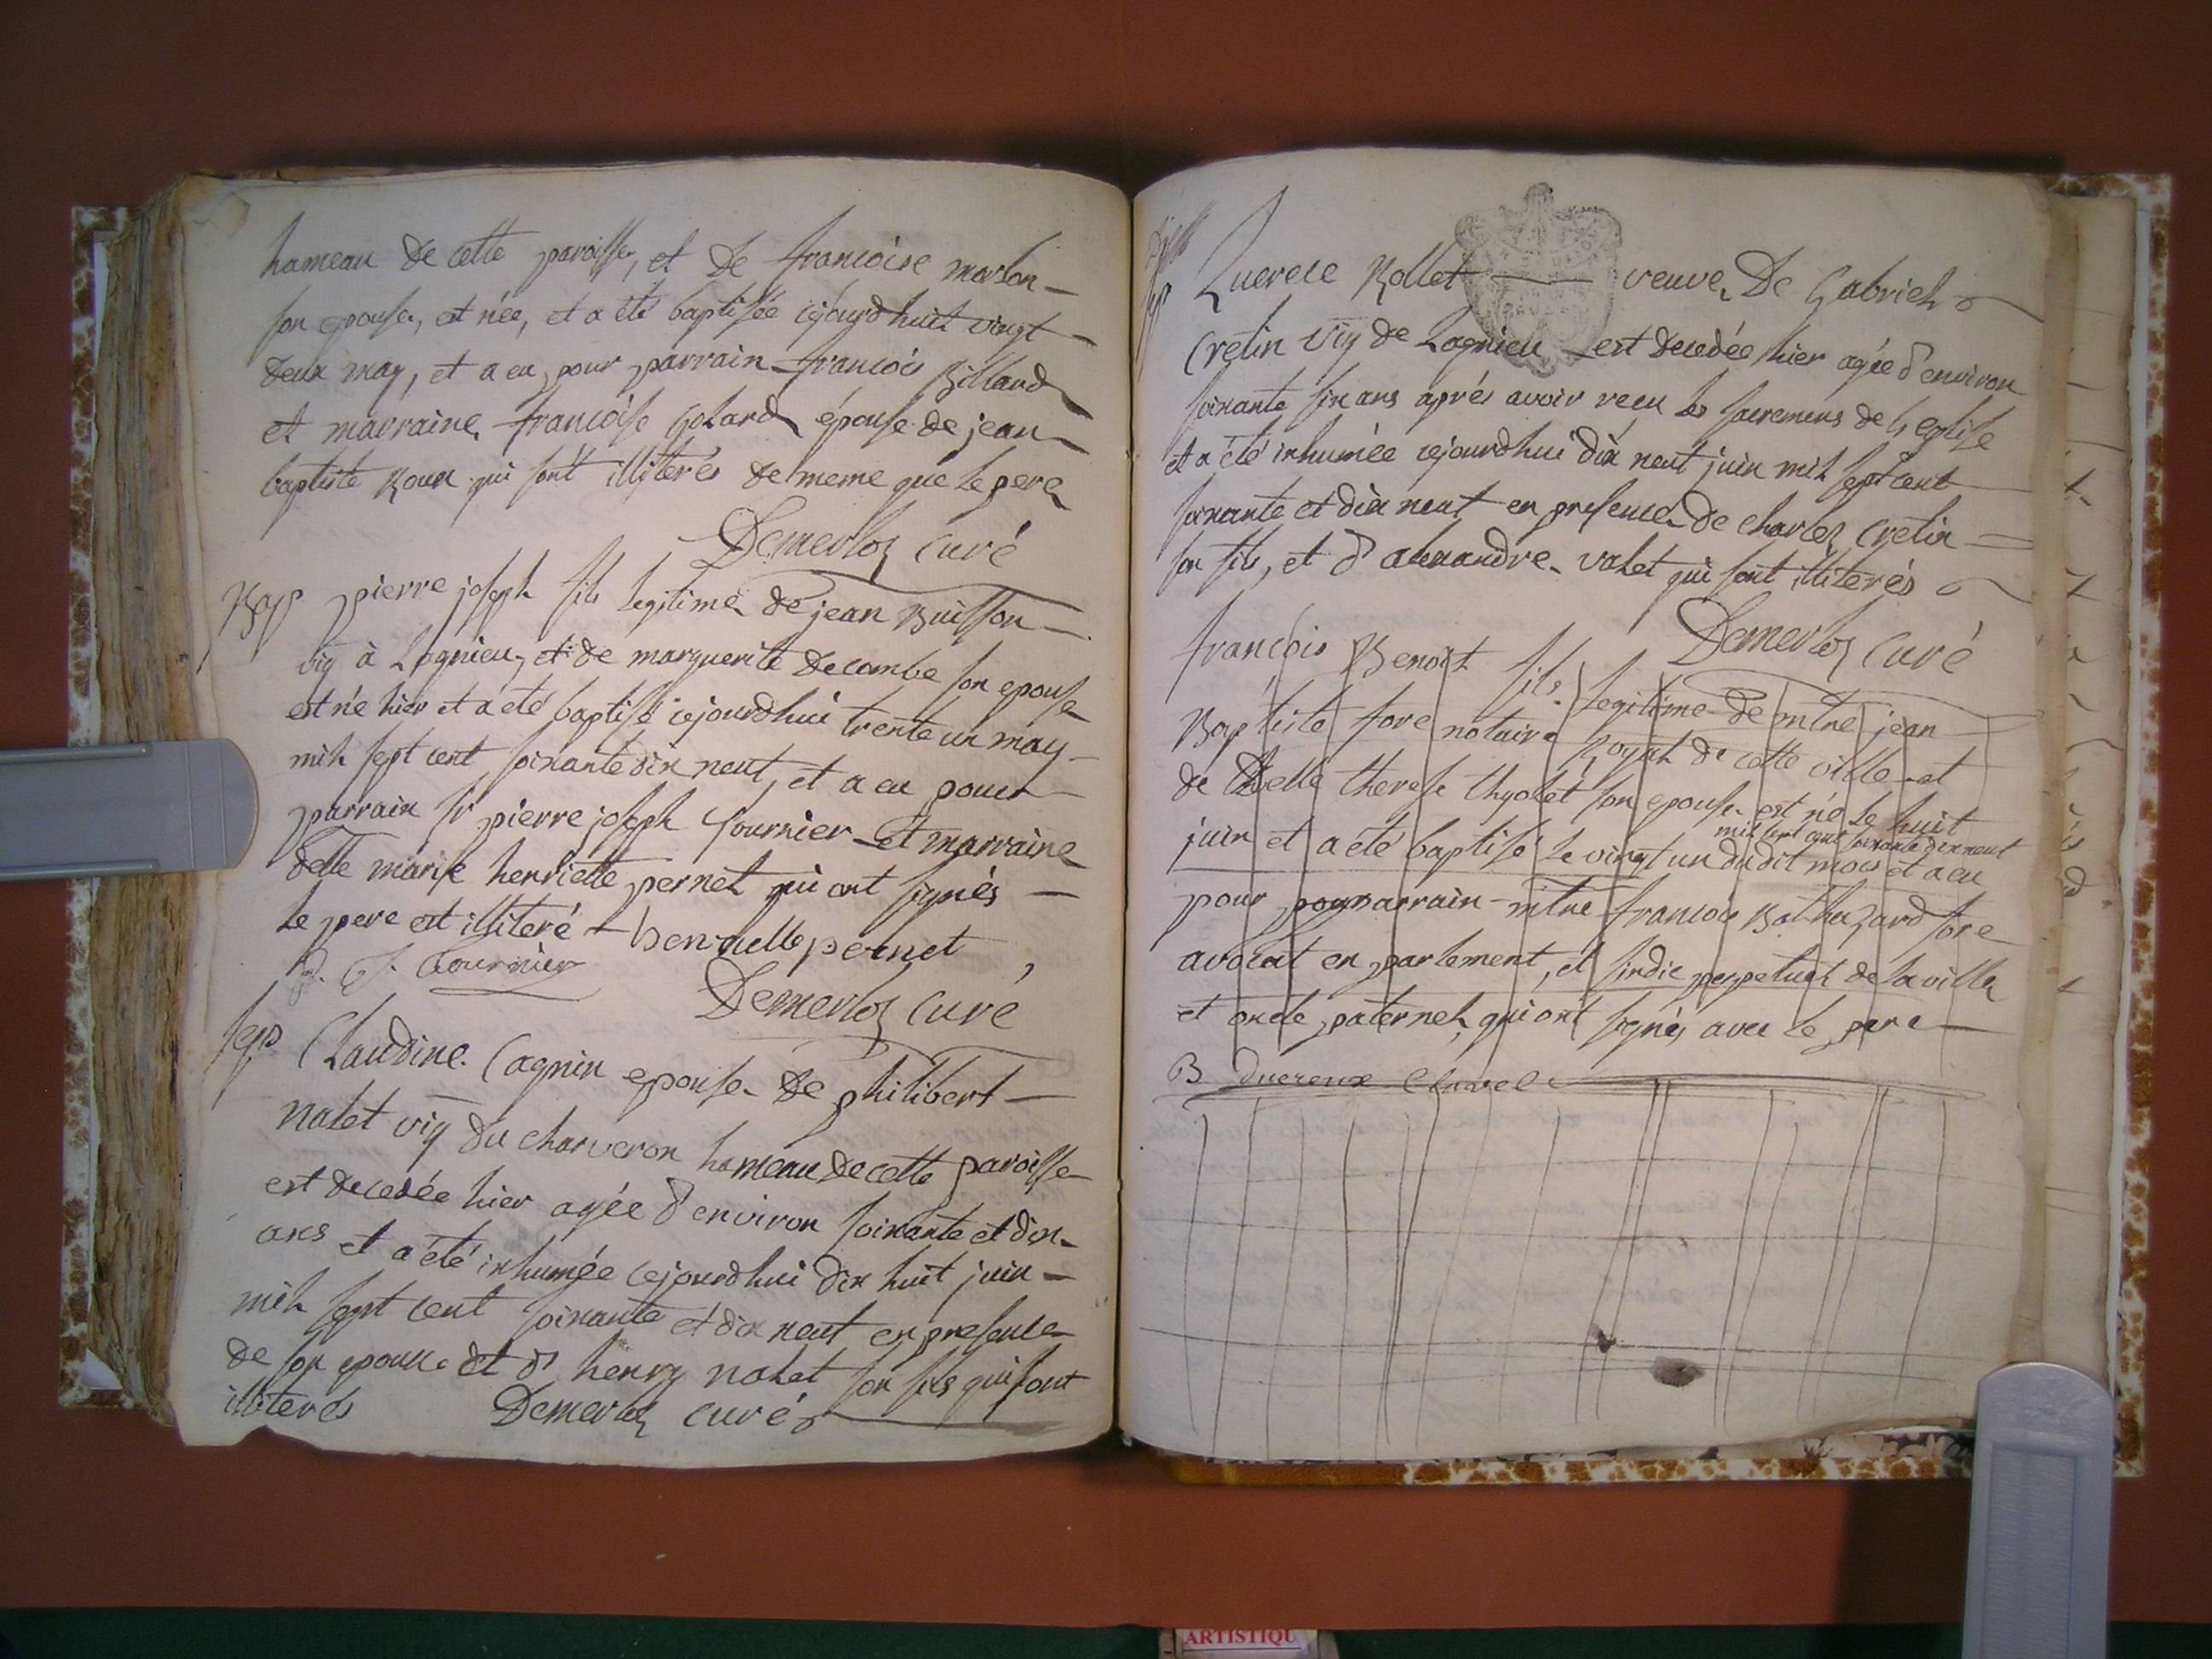 hameau de cette paroisse, et de francoise marlon
son epouse, est née, et a été baptisée cejourdhuit vingt
deux may, et a eu, pour parrain francois Billard
et marraine francoise golard épouse de jean
baptiste Roux qui sont illiterés de meme que le pere
Demerloz curé
Bap pierre joseph fils legitime de jean Buisson
vig à Lagnieu, et de marguerite decombe son epouse
est né hier et a été baptisé cejourdhui trente un may
mil sept cent soixante dix neuf, et a eu pour
parrain sr pierre joseph fournier et marraine
delle marie henriette pernet qui ont signés
le pere est illiteré henriette pernet
p. J. fournier
Demerloz curé
sep Claudine Cagnin epouse de philibert
nalet vig du charveron hameau de cette paroisse
est decedée hier agée d'environ soixante et dix
ans et a été inhumée cejourdhui dix huit juin
mil sept cent soixante et dix neuf en presence
de son epoux et d' henry nalet son fils qui sont
illiterés Demerloz curé
Rollet veuve de Gabriel
Cretin vig de Lagnieu est decedée hier agée d'environ
soixante six ans aprés avoir recu les sacremens de l'eglise
et a été inhumée cejourdhui dix neuf juin mil sept cent
soixante et dix neuf en presence de charles Cretin
son fils, et d'alexandre valet qui sont illiterés
Demerloz curé
françois Benoit fils legitime de mtre jean
Baptiste fore notaire Royal de cette ville et
de Delle therese son epouse est né le huit
juin et a été baptisé le vingt un dudit mois mil sept cent soixante dix neuf et a eu
pour parrain mtre francois Balthazard fore
avocat en parlement, et sindic perpetuel de la ville
et oncle paternel, qui ont signés avec le pere
B ducreux Clavel
ARTISTIQU